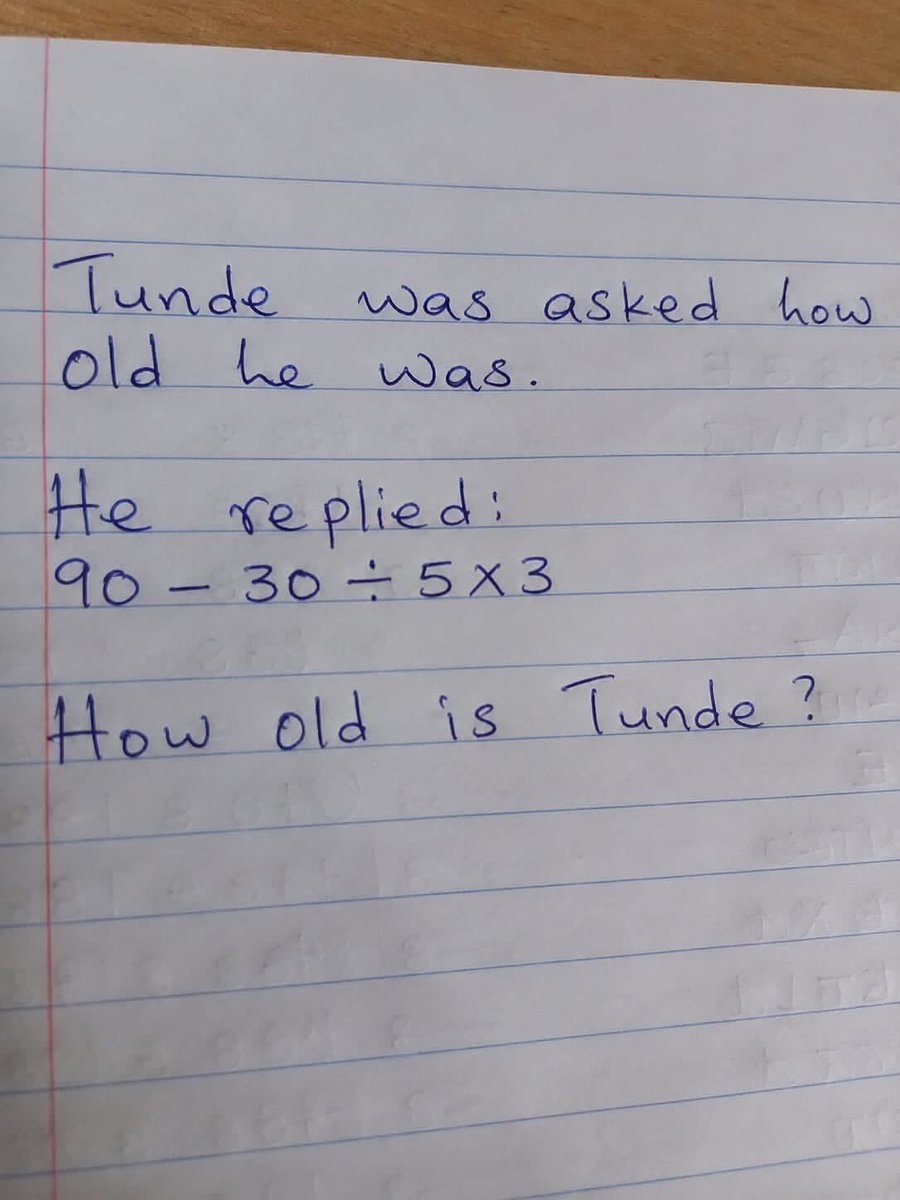 Tunde was asked how
old he was.
He replied:
90 - 30 ÷ 5 x 3
How old is Tunde?